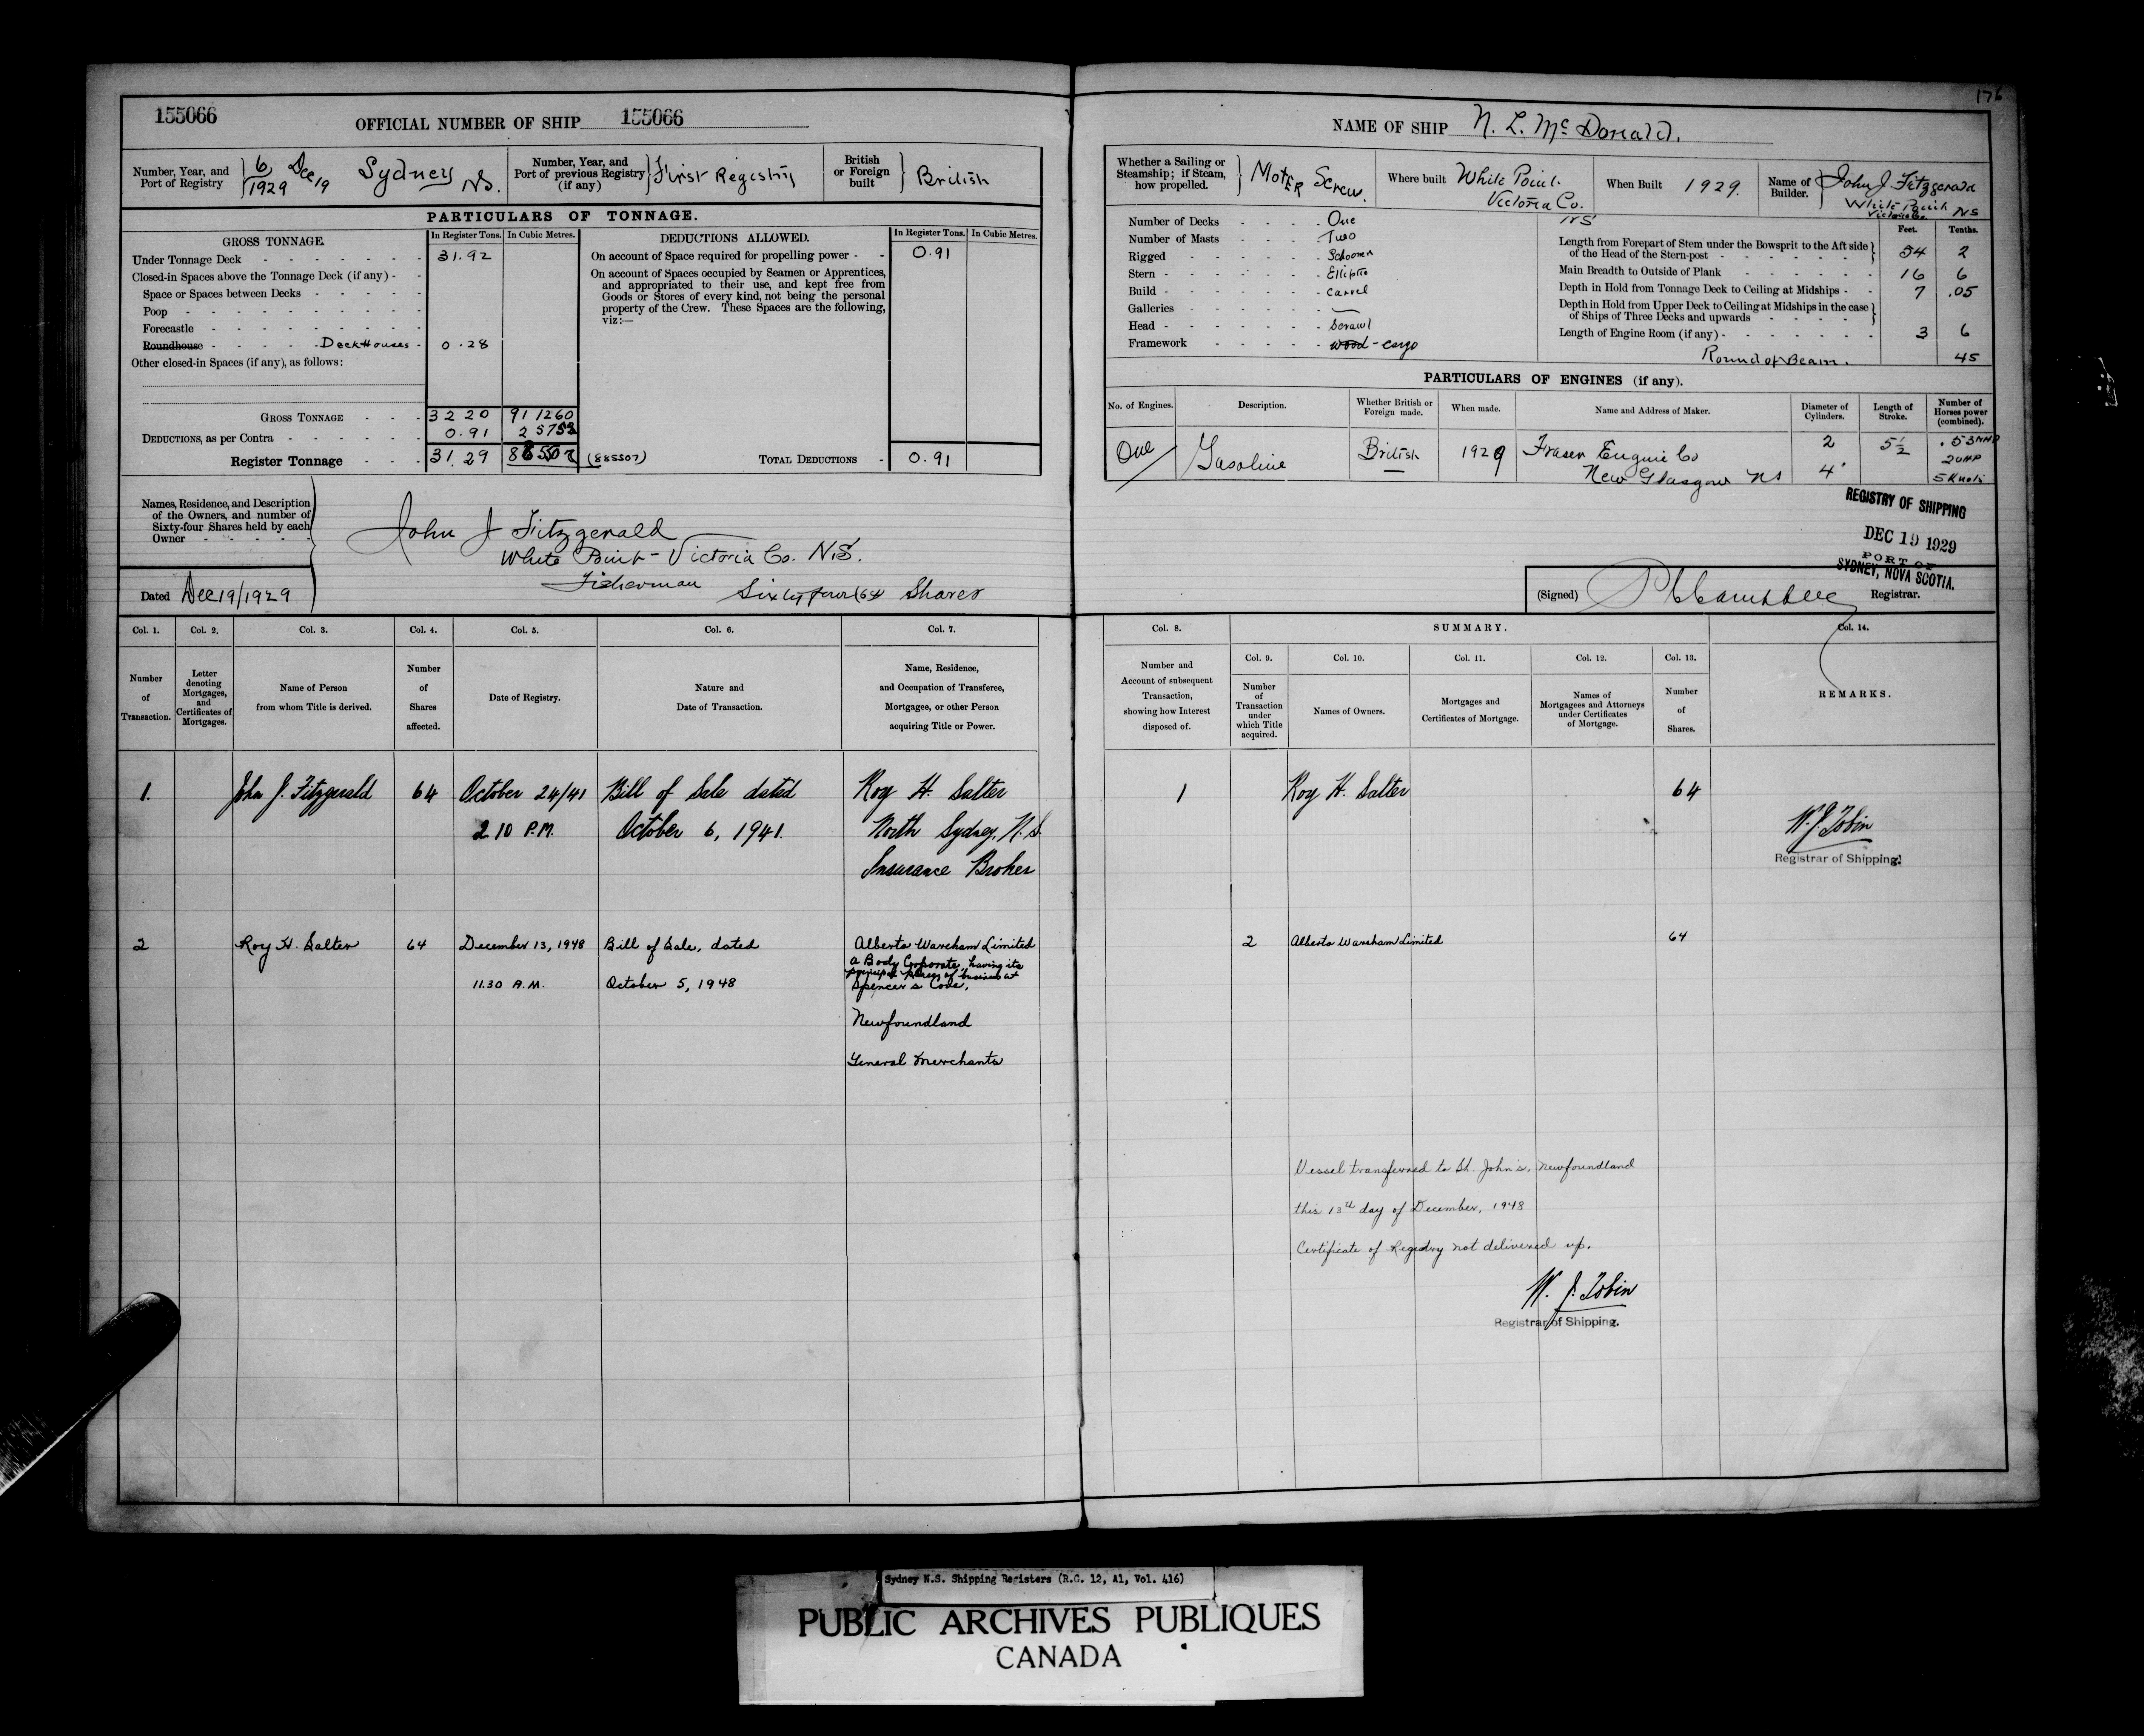 176
155066
OFFICIAL NUMBER OF SHIP 155066
NAME OF SHIP N. L. Mc Donald.
Number, Year, and Port of Registry 6/1929 Dec 19 Sydney NS.
Number, Year, and Port of previous Registry (if any) First Registry
British or Foreign built British
Whether a Sailing or Steamship; if Steam, how propelled. Moter Screw.
Where built White Point. Victoria Co. NS
When Built 1929.
Name of Builder. John J. Fitzgerald White Point Victoria Co. NS
PARTICULARS OF TONNAGE.
GROSS TONNAGE. In Register Tons. In Cubic Metres.
Under Tonnage Deck 31.92
Closed-in Spaces above the Tonnage Deck (if any)
Space or Spaces between Decks
Poop
Forecastle
Roundhouse Deck Houses 0.28
Other closed-in Spaces (if any), as follows:
GROSS TONNAGE 32 20 91 1260
DEDUCTIONS, as per Contra 0.91 2 5753
Register Tonnage 31.29 88 5507 (885507)
DEDUCTIONS ALLOWED. In Register Tons. In Cubic Metres.
On account of Space required for propelling power 0.91
On account of Spaces occupied by Seamen or Apprentices,
and appropriated to their use, and kept free from
Goods or Stores of every kind, not being the personal
property of the Crew. These Spaces are the following,
viz:—
TOTAL DEDUCTIONS 0.91
Number of Decks One
Number of Masts Two
Rigged Schooner
Stern Elliptic
Build Carvel
Galleries —
Head Scrawl
Framework wood - cargo
Feet. Tenths.
Length from Forepart of Stem under the Bowsprit to the Aft side of the Head of the Stern-post 54 2
Main Breadth to Outside of Plank 16 6
Depth in Hold from Tonnage Deck to Ceiling at Midships 7 .05
Depth in Hold from Upper Deck to Ceiling at Midships in the case of Ships of Three Decks and upwards
Length of Engine Room (if any) 3 6
Round of Beam. 45
PARTICULARS OF ENGINES (if any).
No. of Engines. Description. Whether British or Foreign made. When made. Name and Address of Maker. Diameter of Cylinders. Length of Stroke. Number of Horses power (combined).
One Gasoline British 1929 Fraser Engine Co 2 5½ .53 NHP
New Glasgow NS 4" 20HP
5 Knots
Names, Residence, and Description
of the Owners, and number of
Sixty-four Shares held by each
Owner
John J Fitzgerald
White Point - Victoria Co. N.S.
Fisherman Sixty four (64 Shares
Dated Dec 19/1929
REGISTRY OF SHIPPING
DEC 19 1929
PORT OF
SYDNEY, NOVA SCOTIA.
(Signed) P Campbell Registrar.
Col. 1. Col. 2. Col. 3. Col. 4. Col. 5. Col. 6. Col. 7.
Number of Transaction.
Letter denoting Mortgages, and Certificates of Mortgages.
Name of Person from whom Title is derived.
Number of Shares affected.
Date of Registry.
Nature and Date of Transaction.
Name, Residence, and Occupation of Transferee, Mortgagee, or other Person acquiring Title or Power.
Col. 8. SUMMARY. Col. 14.
Col. 9. Col. 10. Col. 11. Col. 12. Col. 13.
Number and Account of subsequent Transaction, showing how Interest disposed of.
Number of Transaction under which Title acquired.
Names of Owners.
Mortgages and Certificates of Mortgage.
Names of Mortgagees and Attorneys under Certificates of Mortgage.
Number of Shares.
REMARKS.
1. John J. Fitzgerald 64 October 24/41 Bill of Sale dated Roy H. Salter
2 10 P.M. October 6, 1941. North Sydney, N.S.
Insurance Broker
1 Roy H. Salter 64
W. J. Tobin
Registrar of Shipping.
2 Roy H. Salter 64 December 13, 1948 Bill of Sale, dated Alberto Wareham Limited
a Body Corporate having its
principal place of business at
11.30 A.M. October 5, 1948 Spencer's Cove,
Newfoundland
General Merchants
2 Alberto Wareham Limited 64
Vessel transferred to St. John's, Newfoundland
this 13th day of December, 1948
Certificate of Registry not delivered up.
W. J. Tobin
Registrar of Shipping.
Sydney N.S. Shipping Registers (R.G. 12, A1, Vol. 416)
PUBLIC ARCHIVES PUBLIQUES
CANADA